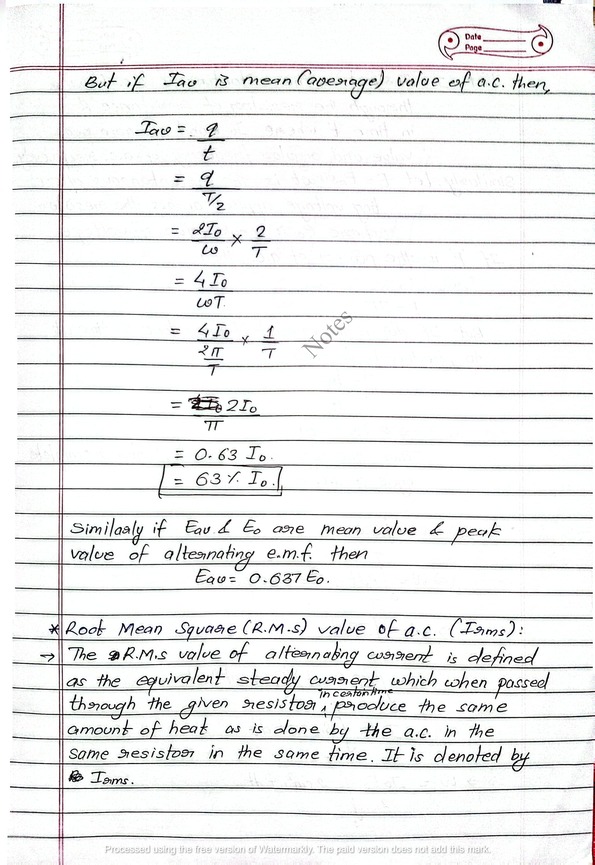 Date
Page
But if Iav is mean (average) value of a.c. then,
Iav = q
t
= q
T/2
= 2I0 × 2
ω T
= 4I0
ωT
= 4I0 × 1
2π T
T
= 2I0
π
= 0.63 I0.
= 63% I0.
Notes
Similarly if Eav & E0 are mean value & peak
value of alternating e.m.f. then
Eav = 0.637 E0.
* Root Mean Square (R.M.S) value of a.c. (Irms):
→ The R.M.S value of alternating current is defined
as the equivalent steady current which when passed
through the given resistor, in certain time produce the same
amount of heat as is done by the a.c. in the
same resistor in the same time. It is denoted by
Irms.
Processed using the free version of Watermarkly. The paid version does not add this mark.